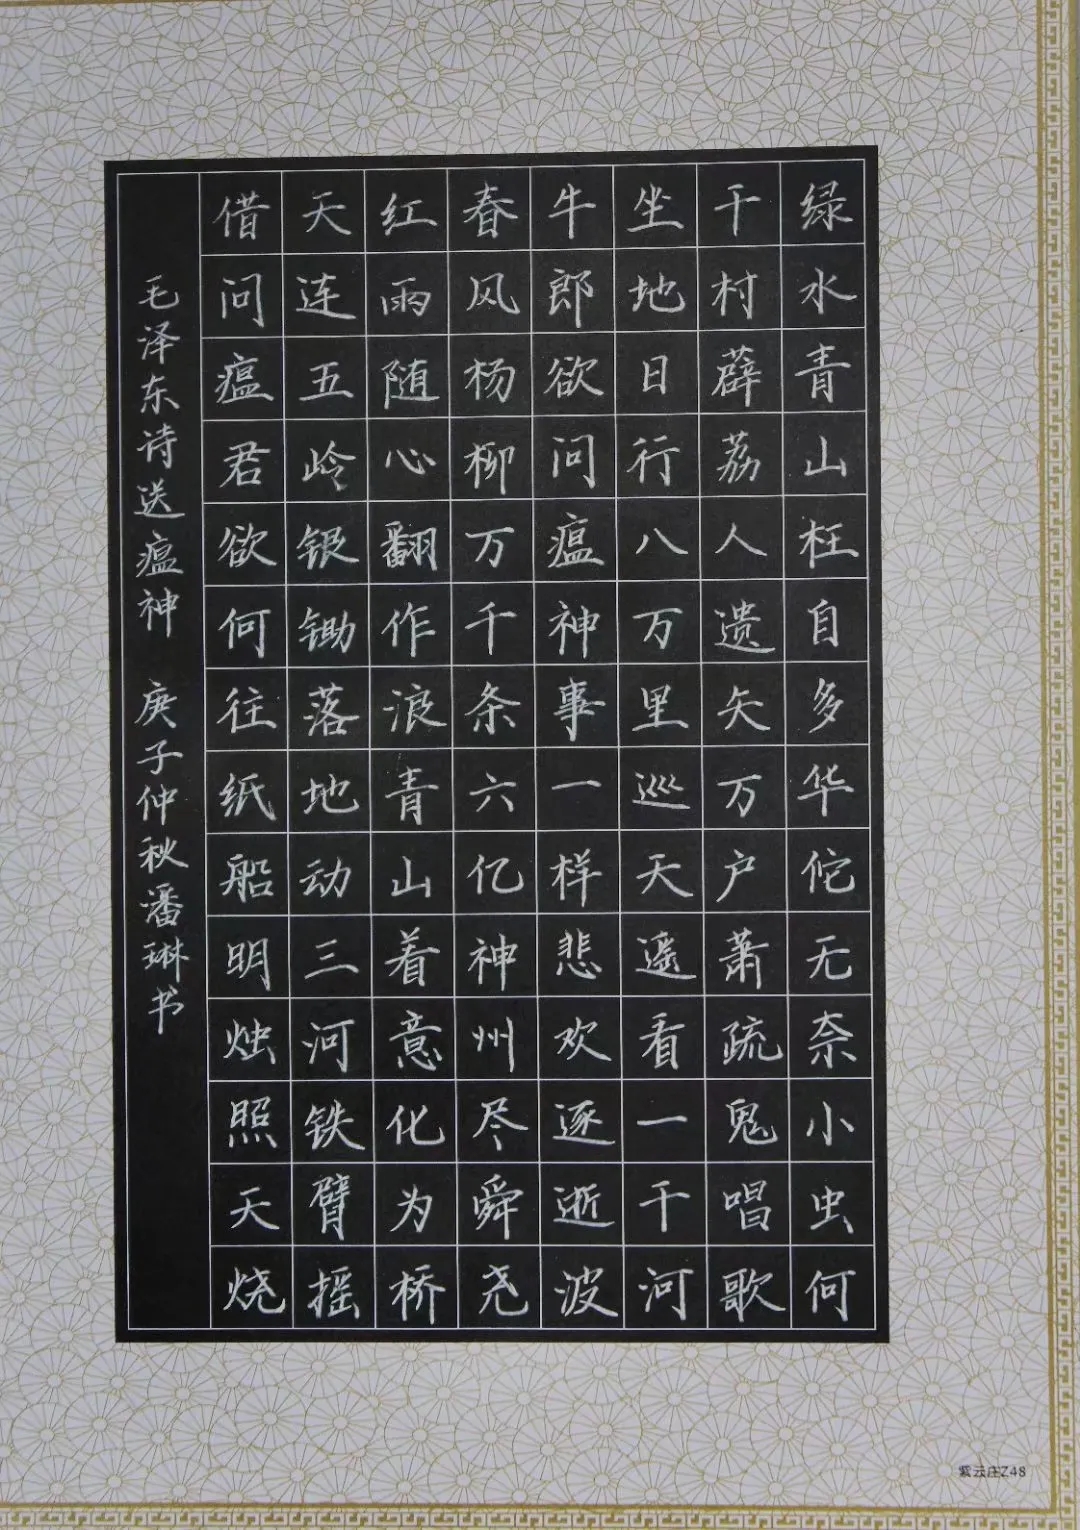 绿水青山枉自多华佗无奈小虫何
千村薜荔人遗矢万户萧疏鬼唱歌
坐地日行八万里巡天遥看一千河
牛郎欲问瘟神事一样悲欢逐逝波
春风杨柳万千条六亿神州尽舜尧
红雨随心翻作浪青山着意化为桥
天连五岭银锄落地动三河铁臂摇
借问瘟君欲何往纸船明烛照天烧
毛泽东诗送瘟神 庚子仲秋潘琳书
紫云庄Z48